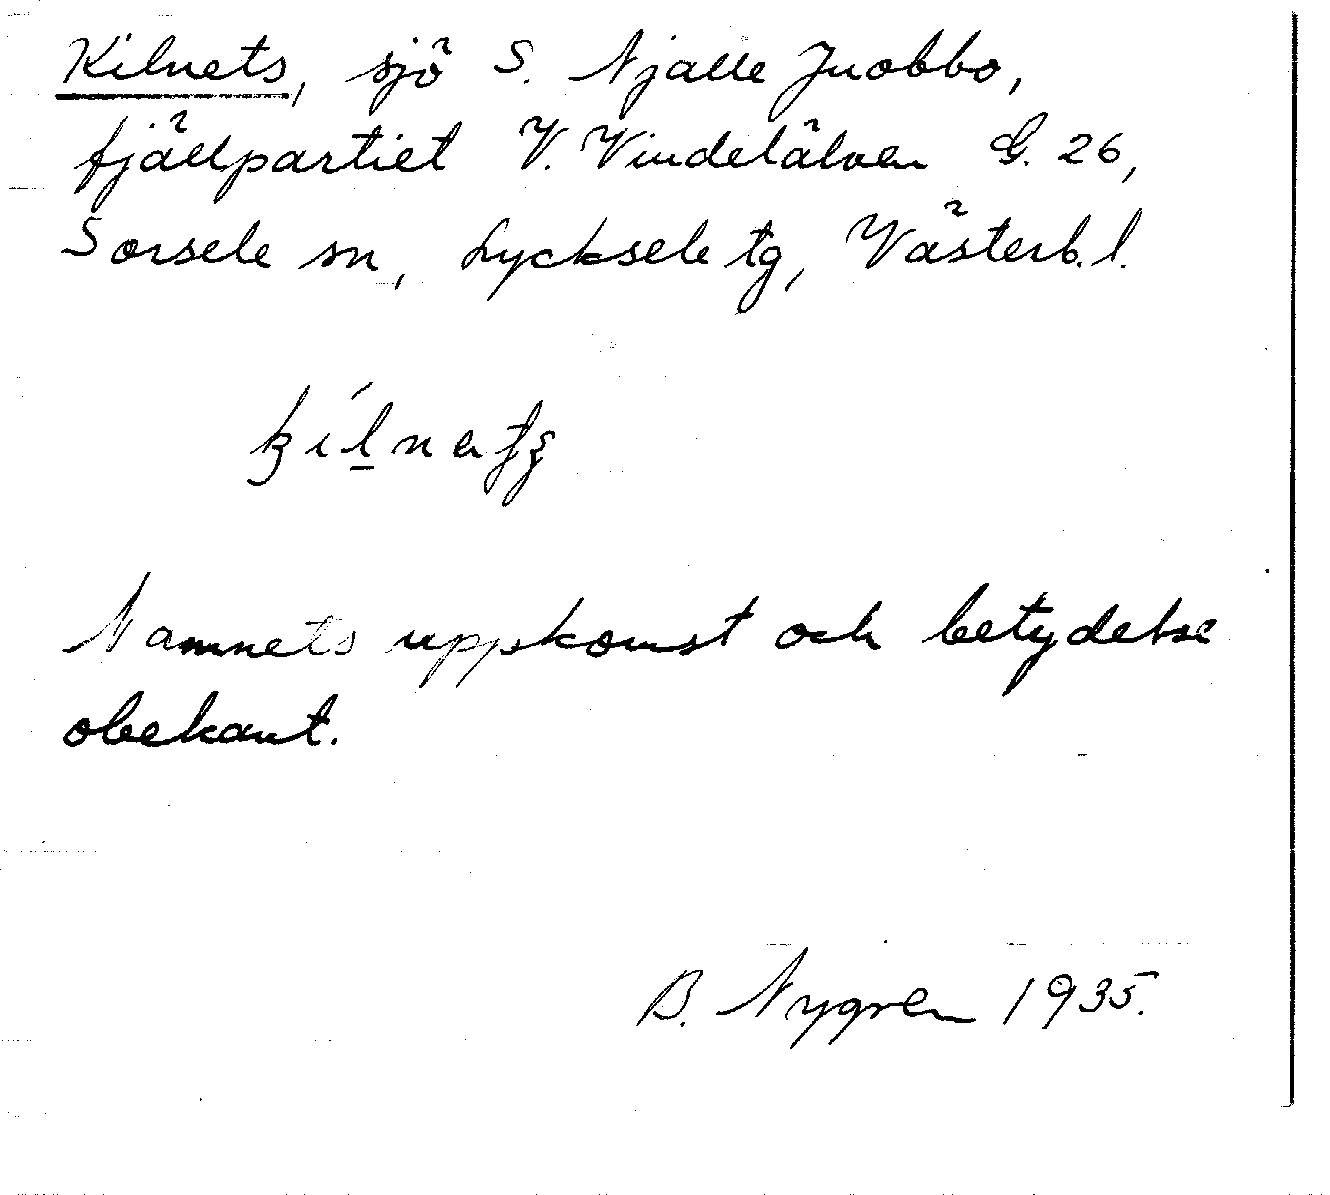 Kilnets, sjö S. Njalle Juobbo,
fjällpartiet V. Vindelälven G. 26,
Sorsele sn, Lycksele tg, Västerb. l.
kílnets
Namnets uppkomst och betydelse
obekant.
B. Nygren 1935.